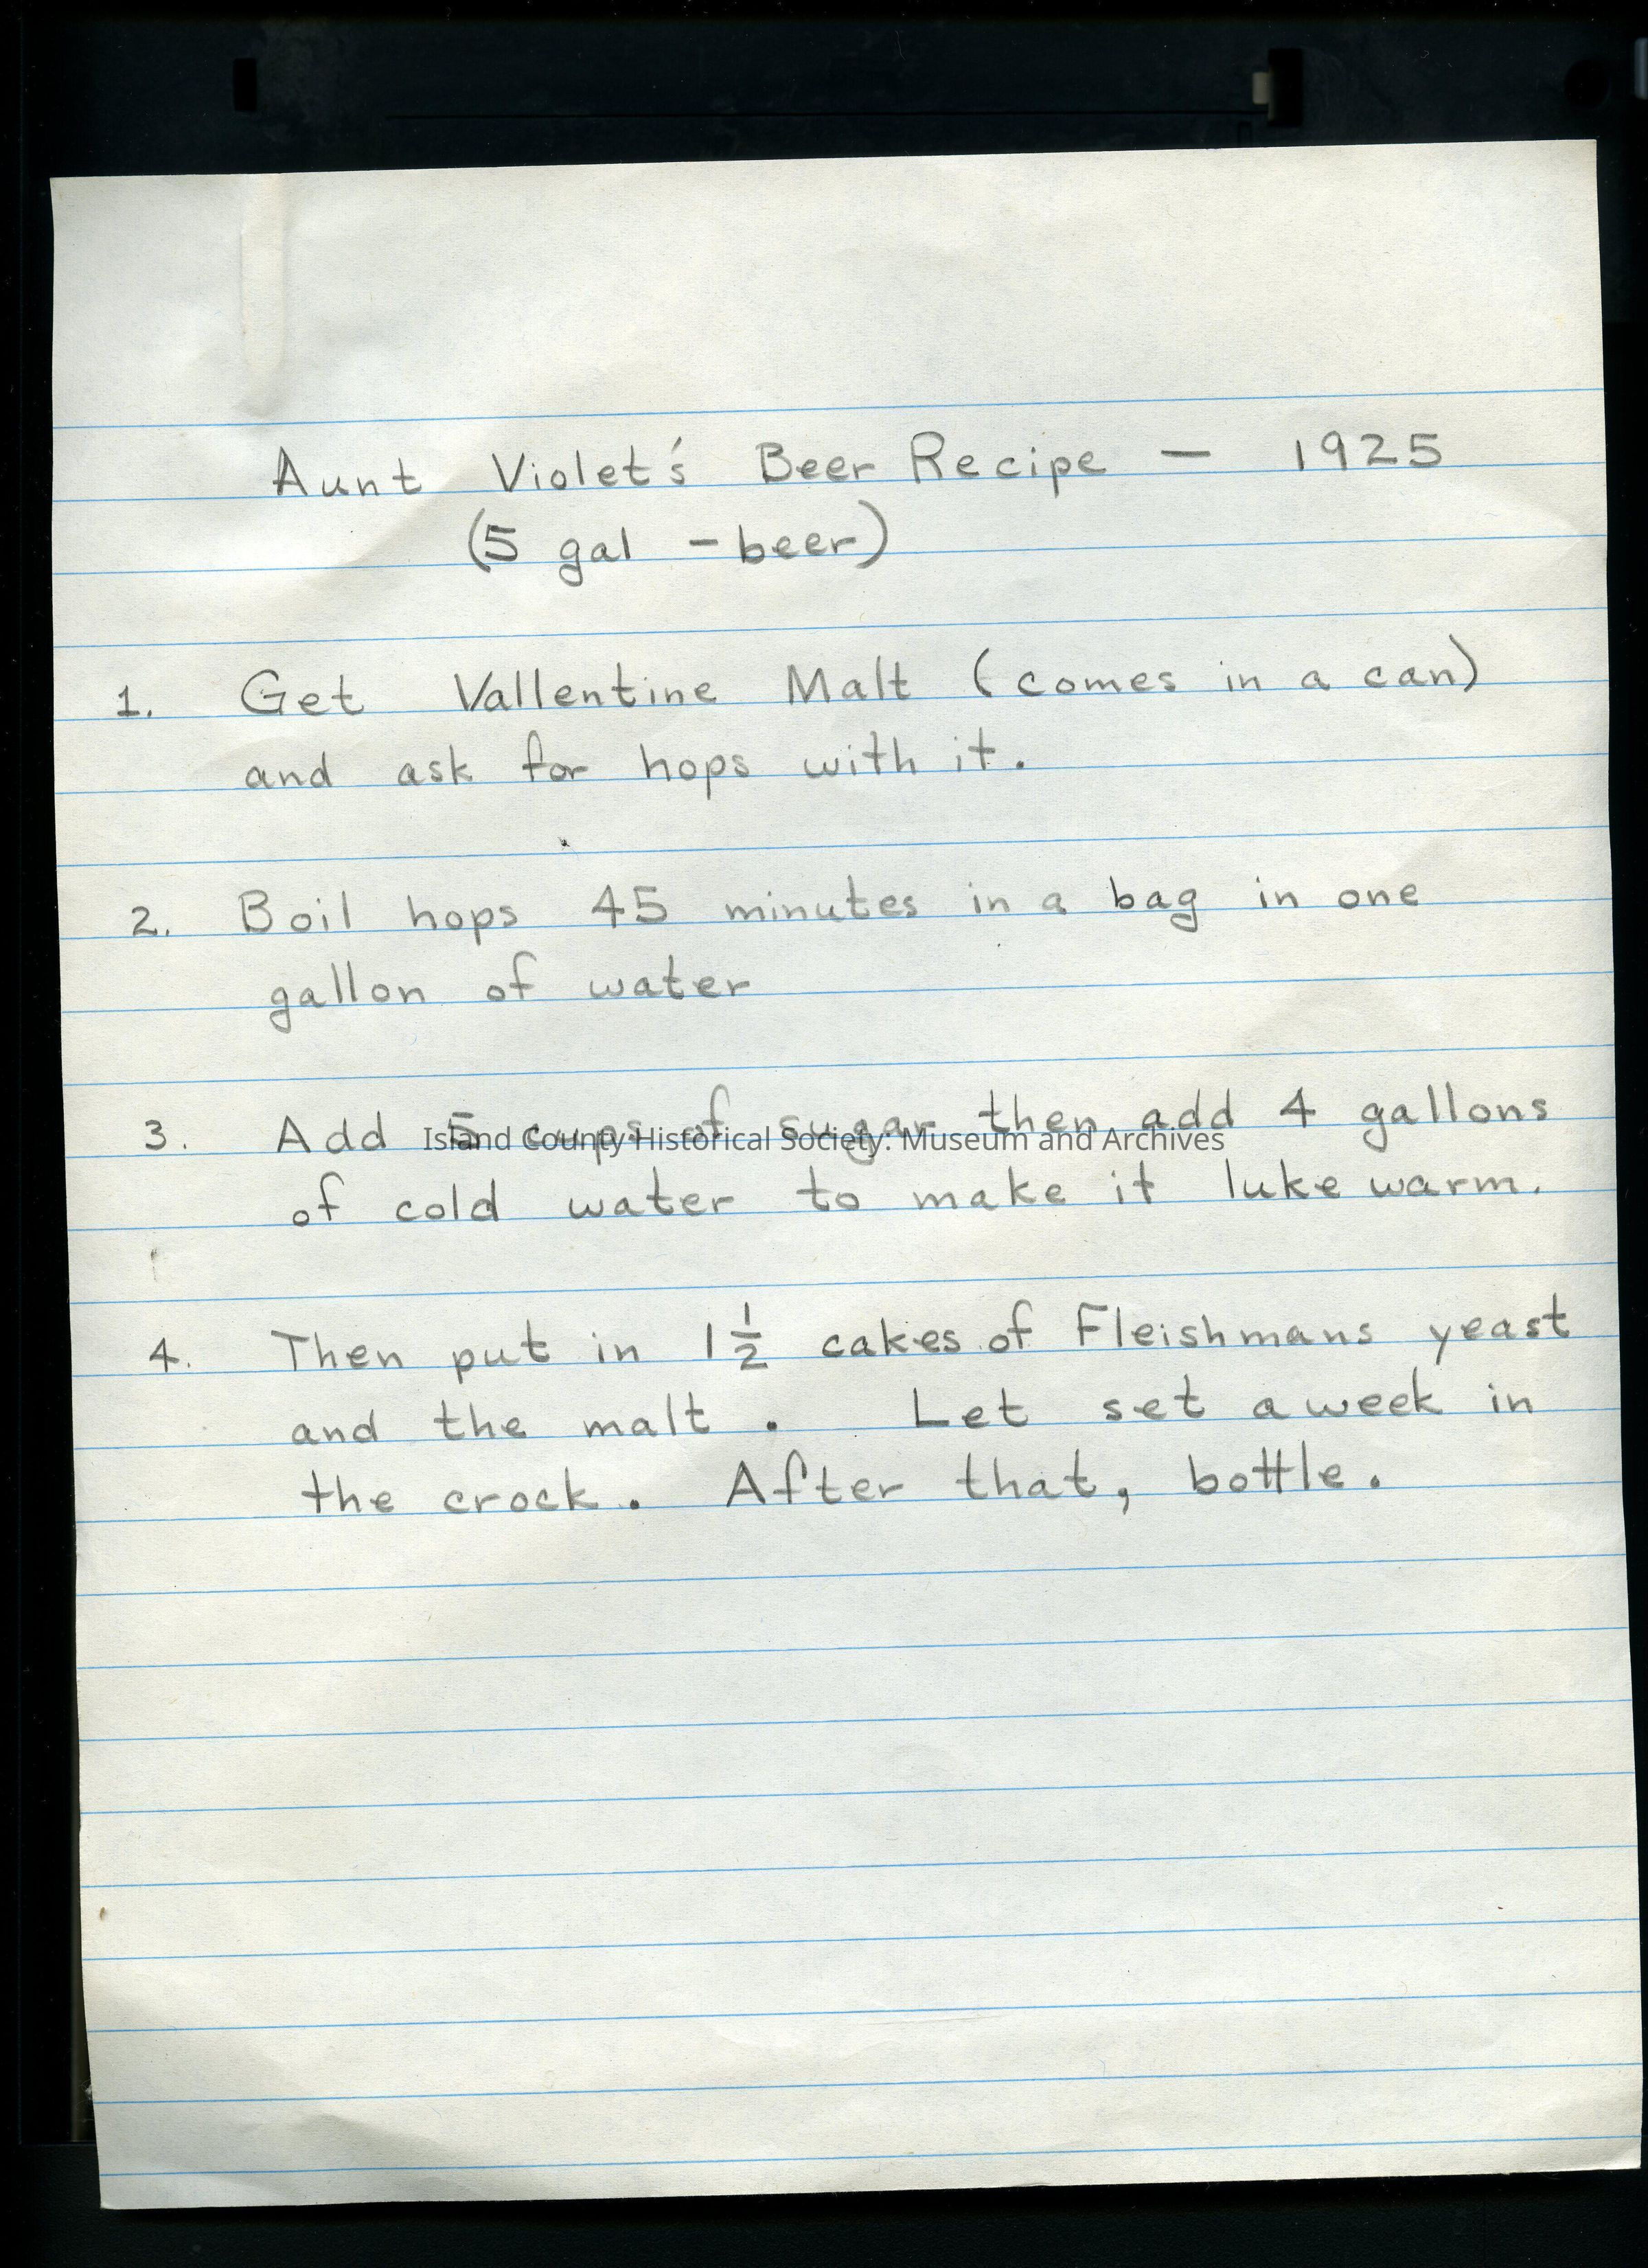 Aunt Violet's Beer Recipe – 1925
(5 gal – beer)
1. Get Vallentine Malt (comes in a can)
and ask for hops with it.
2. Boil hops 45 minutes in a bag in one
gallon of water
3. Add 5 cups of sugar then add 4 gallons
Island County Historical Society: Museum and Archives
of cold water to make it luke warm.
4. Then put in 1 1/2 cakes of Fleishmans yeast
and the malt. Let set a week in
the crock. After that, bottle.